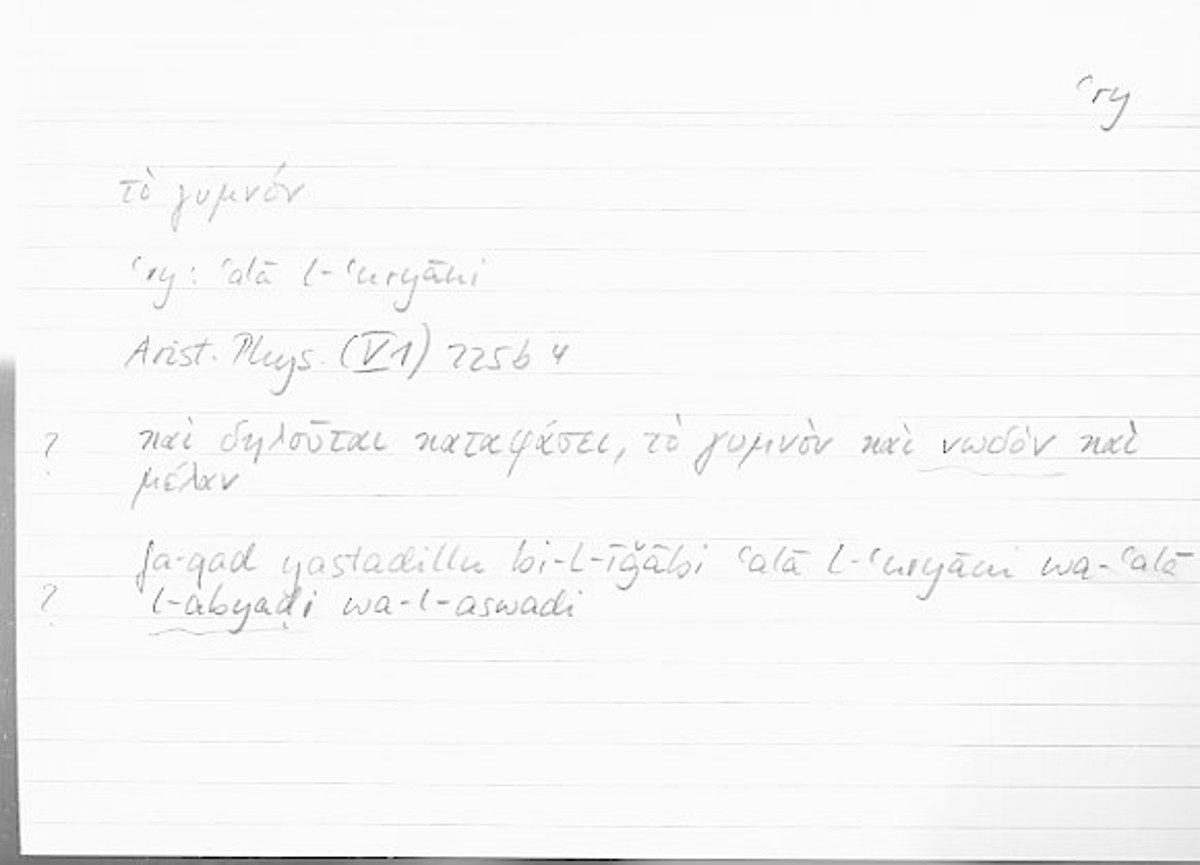 ʿry
τὸ γυμνόν
ʿry: ʿalā l-ʿuryāni
Arist. Phys. (V1) 225b 4
? καὶ δηλοῦται καταφάσει, τὸ γυμνὸν καὶ νωδὸν καὶ
μέλαν
fa-qad yastadillu bi-l-īǧābi ʿalā l-ʿuryāni wa-ʿalā
? l-abyaḍi wa-l-aswadi